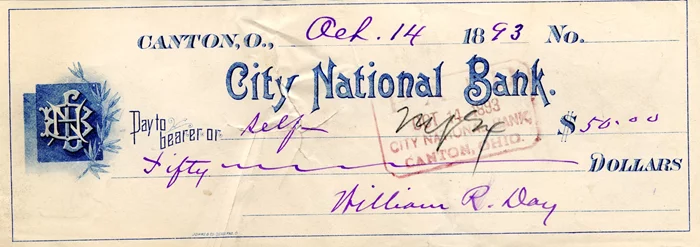 CANTON, O., Oct. 14 1893 No.
City National Bank.
Pay to bearer or Self $50.00
Fifty DOLLARS
William R. Day
CITY NATIONAL BANK,
CANTON, OHIO.